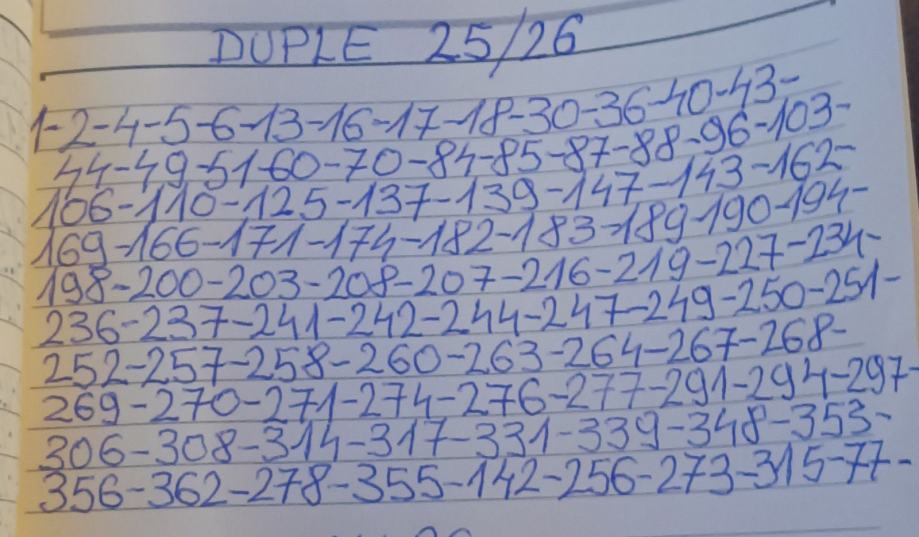 DUPLE 25/26
1-2-4-5-6-13-16-17-18-30-36-40-43-
44-49-51-60-70-84-85-87-88-96-103-
106-110-125-137-139-147-143-162-
169-166-171-174-182-183-189-190-194-
198-200-203-208-207-216-219-227-234-
236-237-241-242-244-247-249-250-251-
252-257-258-260-263-264-267-268-
269-270-271-274-276-277-291-294-297-
306-308-314-317-331-339-348-353-
356-362-278-355-142-256-273-315-77-